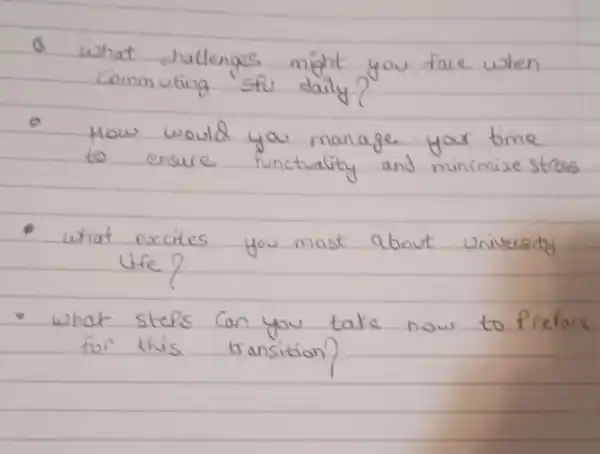 what challenges might you face when
Commuting sfu daily?
How would you manage your time
to ensure functuality and minimise stress
what excites you most about University
life?
what steps can you take now to Prepare
for this transition?